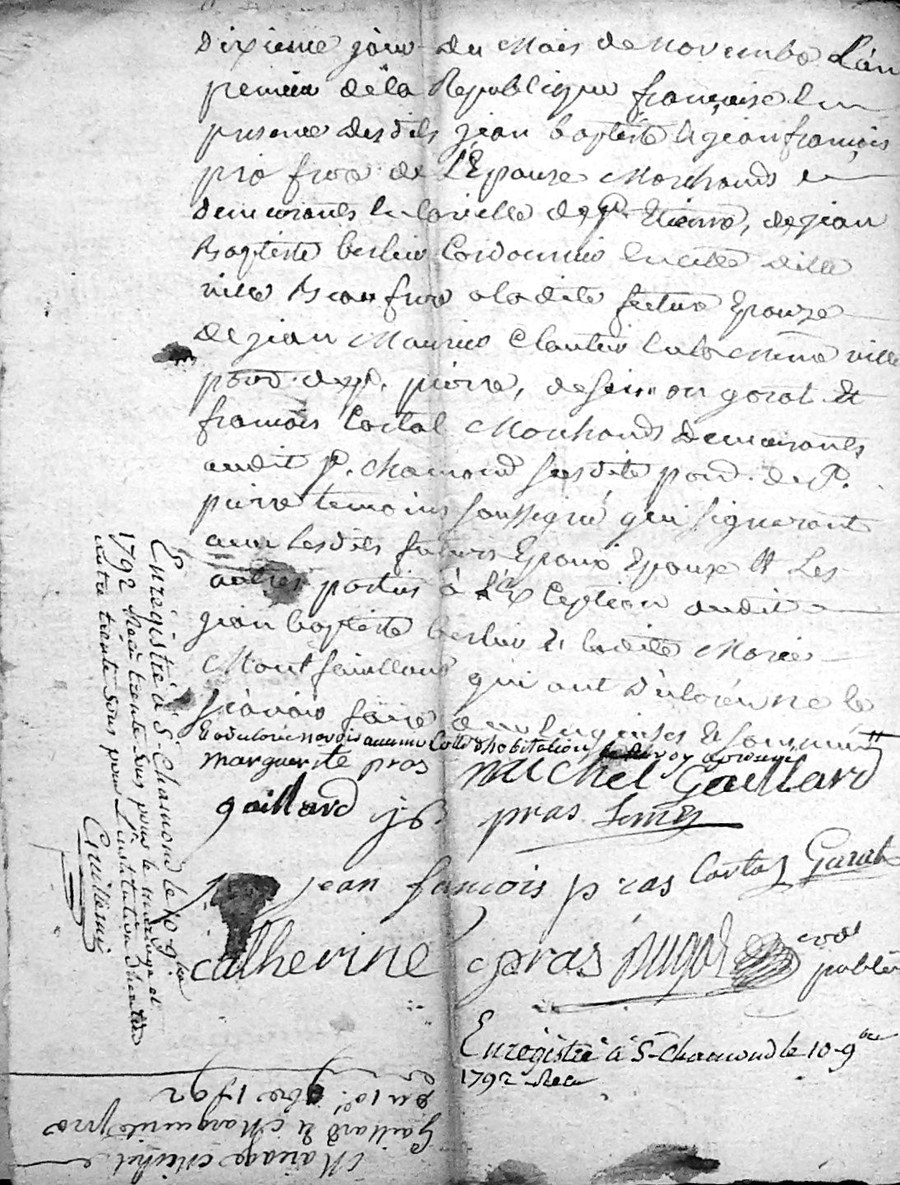 Dixieme jour du Mois de Novembre L'an
premier de la Republique françoise En
presence desdits jean baptiste & jean françois
pra frere de L'Epouze Marchands
demeurants en la ville de St. Etienne, de jean
Baptiste berlier Cordonnier en cette ditte
ville Beau frere a la dite future Epouze
de jean Maurice Clautier en la meme ville
paroi. de St. pierre, de simon garat et
françois Cortal Marchands demeurants
audit St. Chamond susdite paroi. de St.
pierre temoins soussigné qui signeront
avec lesdits futurs Epoux Epouze et Les
autres parties à L'exception dudit
jean baptiste berlier & ladite Marie
Montfeuillant qui ont déclaré ne le
sçavoir faire de ce Enquises & sommés
marguerite pras michel Gaillard
gaillard jb pras
jean fancois pras Cortal Garat
catherine pras
Enregistré à St Chamond le 10 9bre
1792 Reçu
Enregistré à St Chamond le 10 9bre
1792 Reçu trente sous pour le mariage et
autre trente sous pour L'institution d'heritier
Mariage Michel
Gaillard & Marguerite pra
Du 10e. 9bre 1792